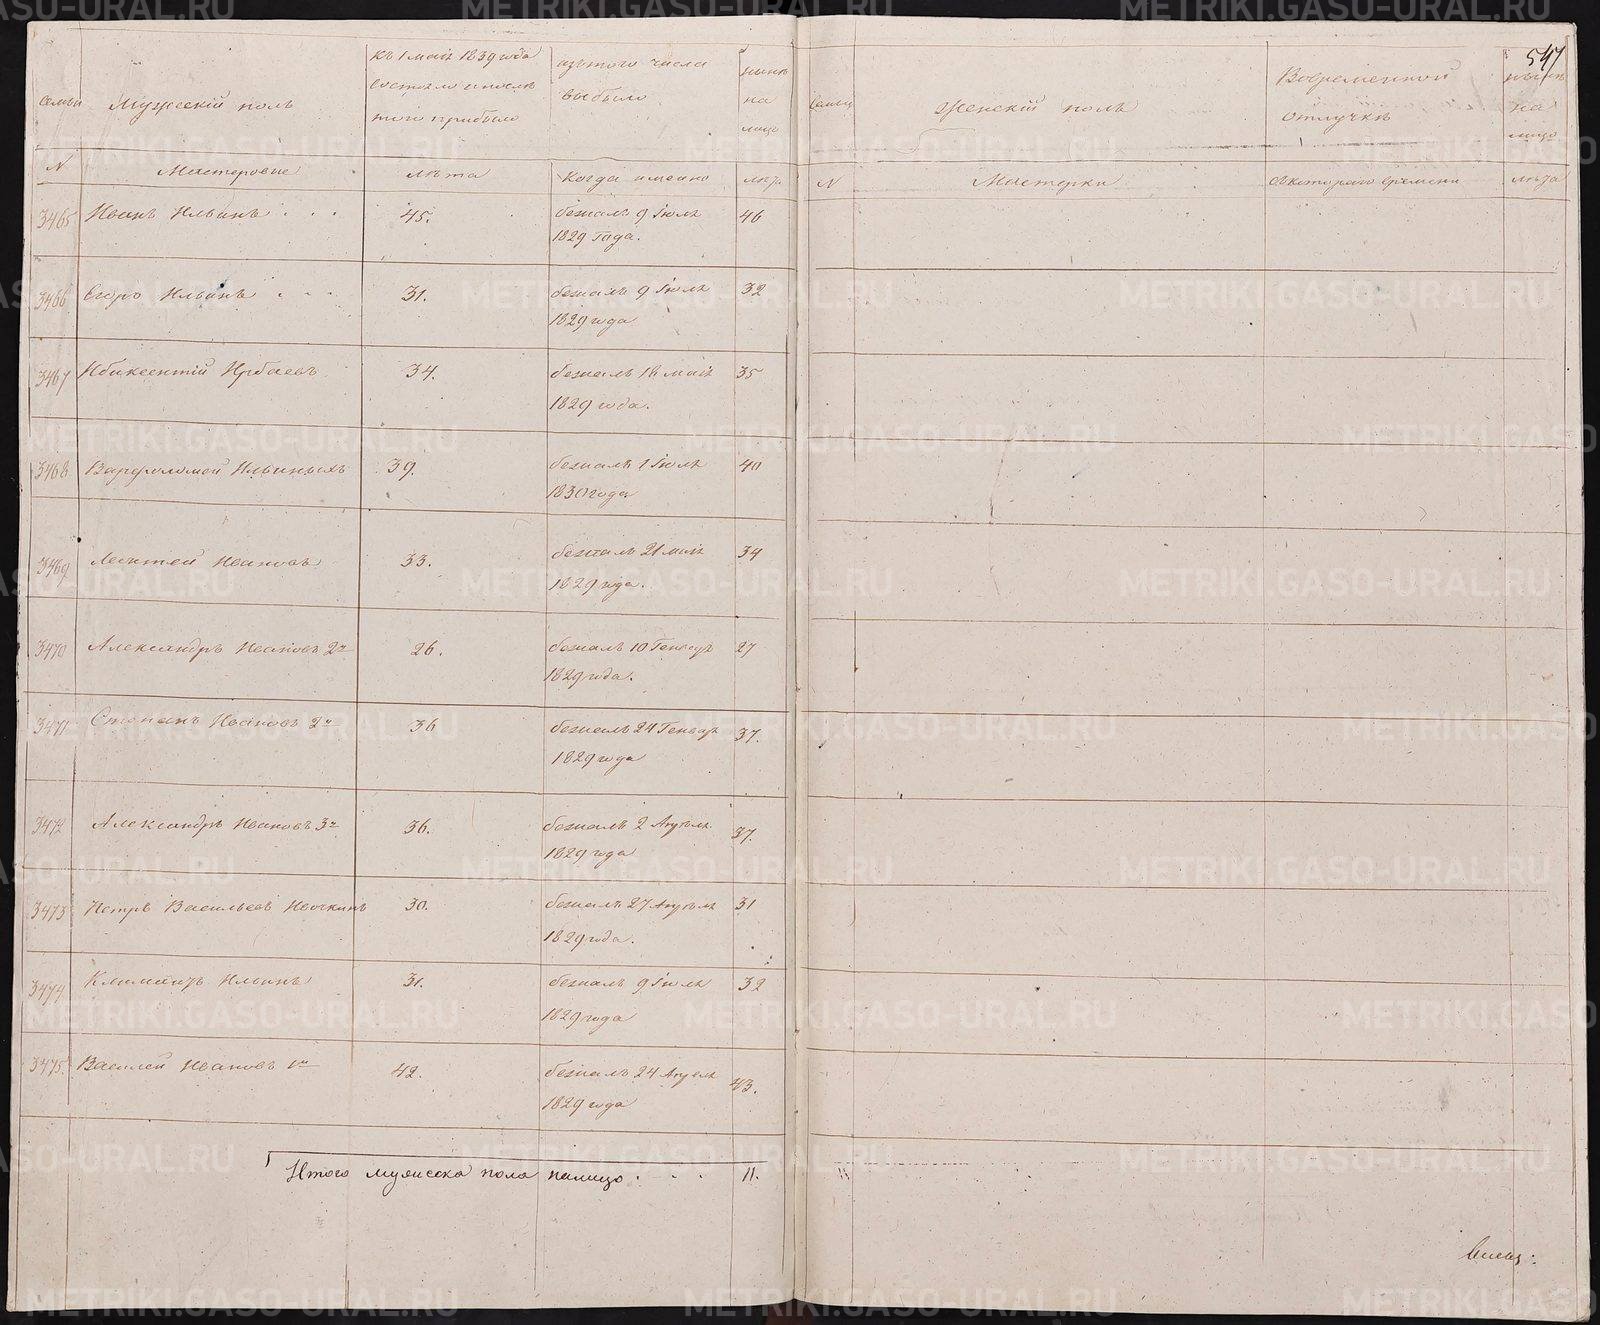 547
Семьи
Мужескій полъ
къ 1 маія 1839 года
состояло и после
того прибыло
изъ того числа
выбыло
нынѣ
на
лицо
Семьи
Женскій полъ
Вовременной
отлучкѣ
нынѣ
на
лицо
N
Мастеровые
лѣта
Когда именно
лѣта
N
Мастерки
съ котораго времени
лѣта
3465 Иванъ Ильинъ . . . 45. бежалъ 9 Іюля 46
1829 года.
3466 Егоръ Ильинъ . . . 31. бежалъ 9 Іюля 32
1829 года
3467 Ирбаевъ 34. бежалъ 18 маія 35
1829 года.
3468 Варфоломей Ильиныхъ 39. бежалъ 1 Іюля 40
1830 года
3469 Леонтей Ивановъ 33. бежалъ 21 маія 34
1829 года.
3470 Александръ Ивановъ 2й 26. бежалъ 10 Генваря 27
1829 года.
3471 Степанъ Ивановъ 2й 36 бежалъ 24 Генваря 37.
1829 года
3472 Александръ Ивановъ 3й 36. бежалъ 2 Апреля 37.
1829 года
3473 Петръ Васильевъ Ивочкинъ 30. бежалъ 27 Апреля 31
1829 года.
3474 Ильинъ 31. бежалъ 9 Іюля 32
1829 года
3475. Василей Ивановъ 1й 42. бежалъ 24 Апреля 43.
1829 года
Итого мужеска пола налицо . . . 11.
METRIKI.GASO-URAL.RU